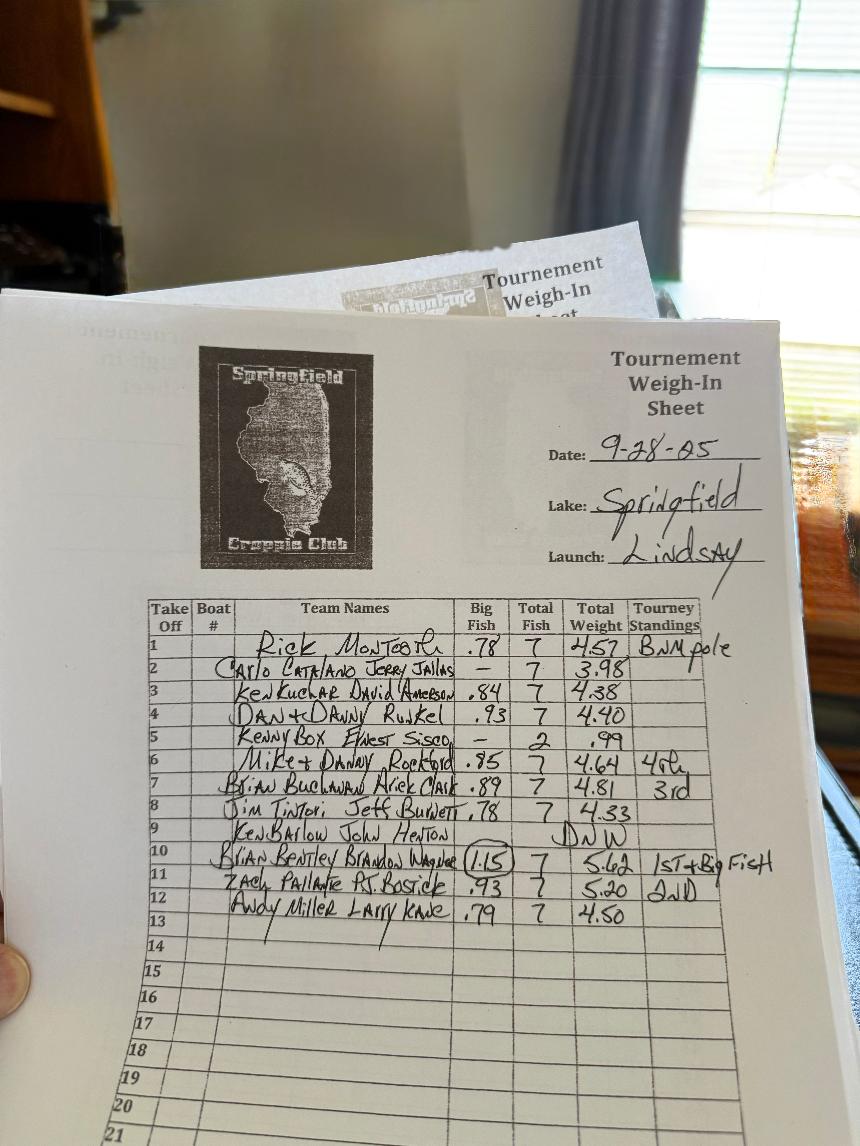 Tournement
Weigh-In
Springfield
Crappie Club
Tournement
Weigh-In
Sheet
Date: 9-28-25
Lake: Springfield
Launch: Lindsay
Take Off Boat # Team Names Big Fish Total Fish Total Weight Tourney Standings
1 Rick Montooth .78 7 4.57 BNM pole
2 Carlo Catalano Jerry Jallas — 7 3.98
3 Ken Kuchar David Amerson .84 7 4.38
4 Dan + Danny Runkel .93 7 4.40
5 Kenny Box Ernest Sisco — 2 .99
6 Mike + Danny Rockford .85 7 4.64 4th
7 Brian Buchanan Arick Clark .89 7 4.81 3rd
8 Jim Tintori Jeff Burnett .78 7 4.33
9 Ken Barlow John Henton DNW
10 Brian Bentley Brandon Wagner 1.15 7 5.62 1ST + Big Fish
11 Zach Pallante P.J. Bostick .93 7 5.20 2ND
12 Andy Miller Larry Kane .79 7 4.50
13
14
15
16
17
18
19
20
21